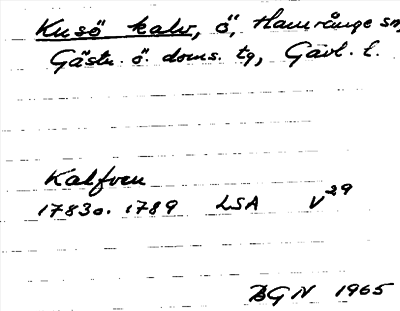 Kusö kalv, ö, Hamrånge sn,
Gästr. ö. doms. tg, Gävl. l.
Kalfven
1783 o. 1789 LSA V29
BGN 1965